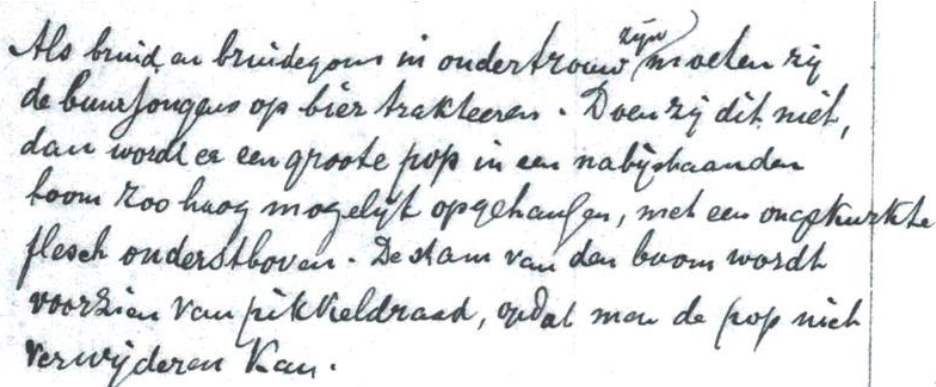 Als bruid en bruidegom in ondertrouw zijn moeten zij
de buurjongens op bier trakteeren. Doen zij dit niet,
dan wordt er een groote pop in een nabijstaanden
boom zoo hoog mogelijk opgehangen, met een ongekurkte
flesch onderstboven. De stam van den boom wordt
voorzien van pikkeldraad, opdat men de pop niet
verwijderen kan.